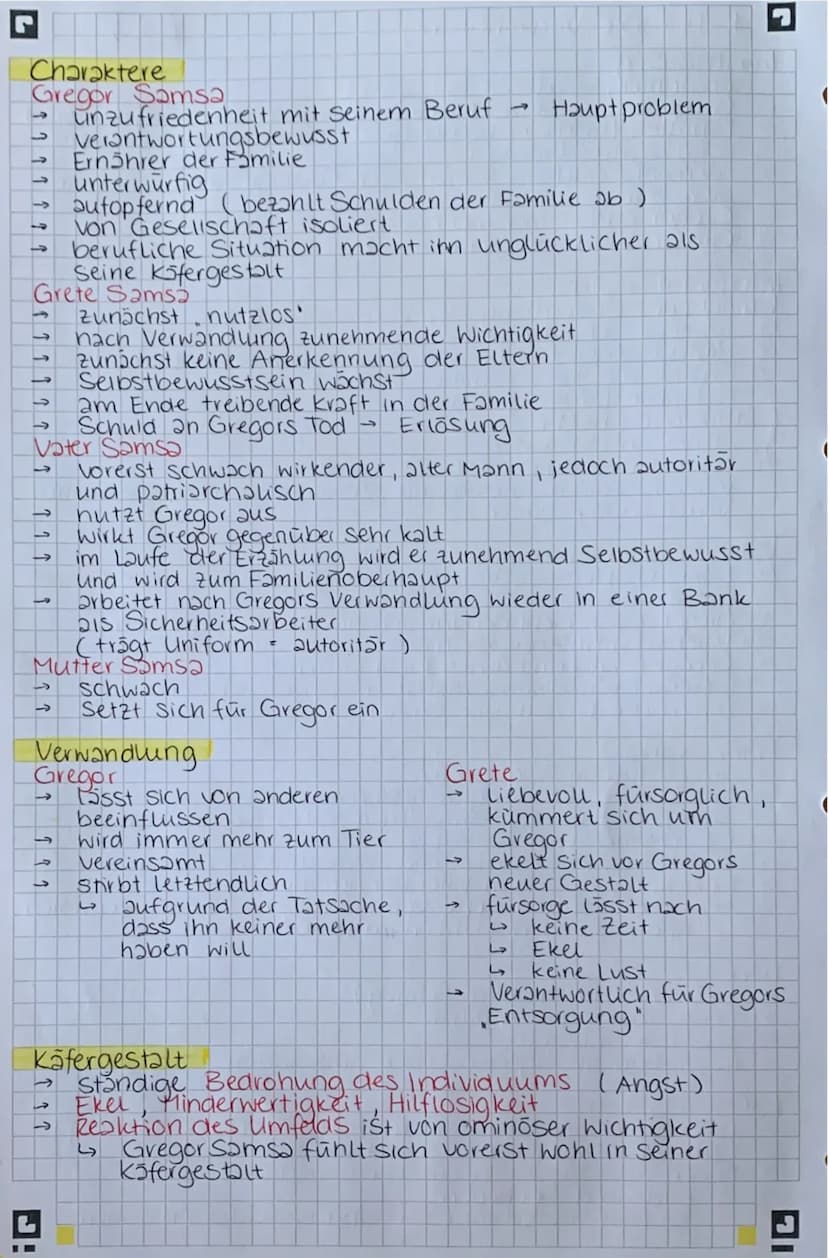 Charaktere
Gregor Samsa
→ Unzufriedenheit mit seinem Beruf → Hauptproblem
→ verantwortungsbewusst
→ Ernährer der Familie
→ unterwürfig
→ aufopfernd (bezahlt Schulden der Familie ab)
→ von Gesellschaft isoliert
→ berufliche Situation macht ihn unglücklicher als
seine Käfergestalt
Grete Samsa
→ zunächst „nutzlos"
→ nach Verwandlung zunehmende Wichtigkeit
→ zunächst keine Anerkennung der Eltern
→ Selbstbewusstsein wächst
→ am Ende treibende Kraft in der Familie
→ Schuld an Gregors Tod → Erlösung
Vater Samsa
→ Vorerst schwach wirkender, alter Mann, jedoch autoritär
und patriarchalisch
→ nutzt Gregor aus
→ wirkt Gregor gegenüber sehr kalt
→ im Laufe der Erzählung wird er zunehmend Selbstbewusst
und wird zum Familienoberhaupt
→ arbeitet nach Gregors Verwandlung wieder in einer Bank
als Sicherheitsarbeiter
(trägt Uniform = autoritär)
Mutter Samsa
→ schwach
→ Setzt sich für Gregor ein
Verwandlung
Gregor
→ lässt sich von anderen
beeinflussen
→ wird immer mehr zum Tier
→ vereinsamt
→ stirbt letztendlich
↳ aufgrund der Tatsache,
dass ihn keiner mehr
haben will
Grete
→ Liebevoll, fürsorglich,
kümmert sich um
Gregor
→ ekelt sich vor Gregors
neuer Gestalt
→ fürsorge lässt nach
↳ keine Zeit
↳ Ekel
↳ keine Lust
→ Verantwortlich für Gregors
„Entsorgung"
Käfergestalt
→ ständige Bedrohung des Individuums (Angst)
→ Ekel, Minderwertigkeit, Hilflosigkeit
→ Reaktion des Umfelds ist von ominöser Wichtigkeit
↳ Gregor Samsa fühlt sich vorerst wohl in seiner
Käfergestalt